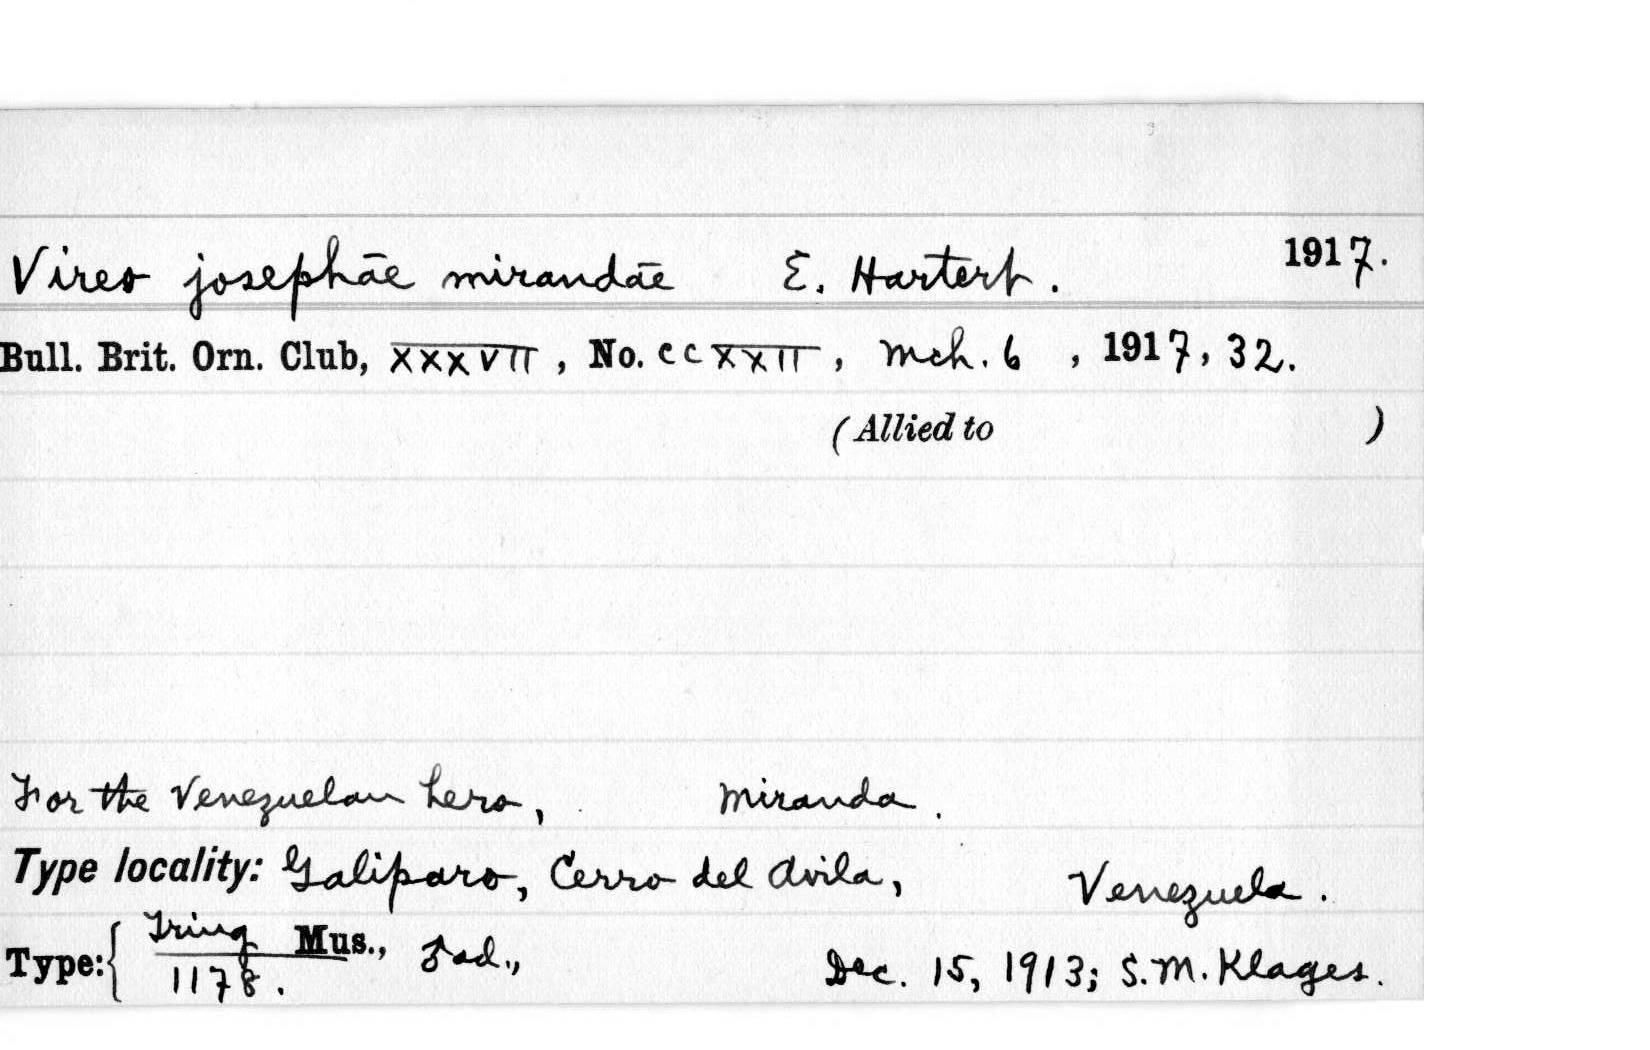 Vireo josephāe mirandāe E. Hartert. 1917.
Bull. Brit. Orn. Club, XXXVII, No. CCXXII, Mch. 6, 1917, 32.
(Allied to )
For the Venezuelan hero, Miranda.
Type locality: Galiparo, Cerro del Avila, Venezuela.
Type: { Tring Mus., ♂ ad., Dec. 15, 1913; S. M. Klages.
1178.